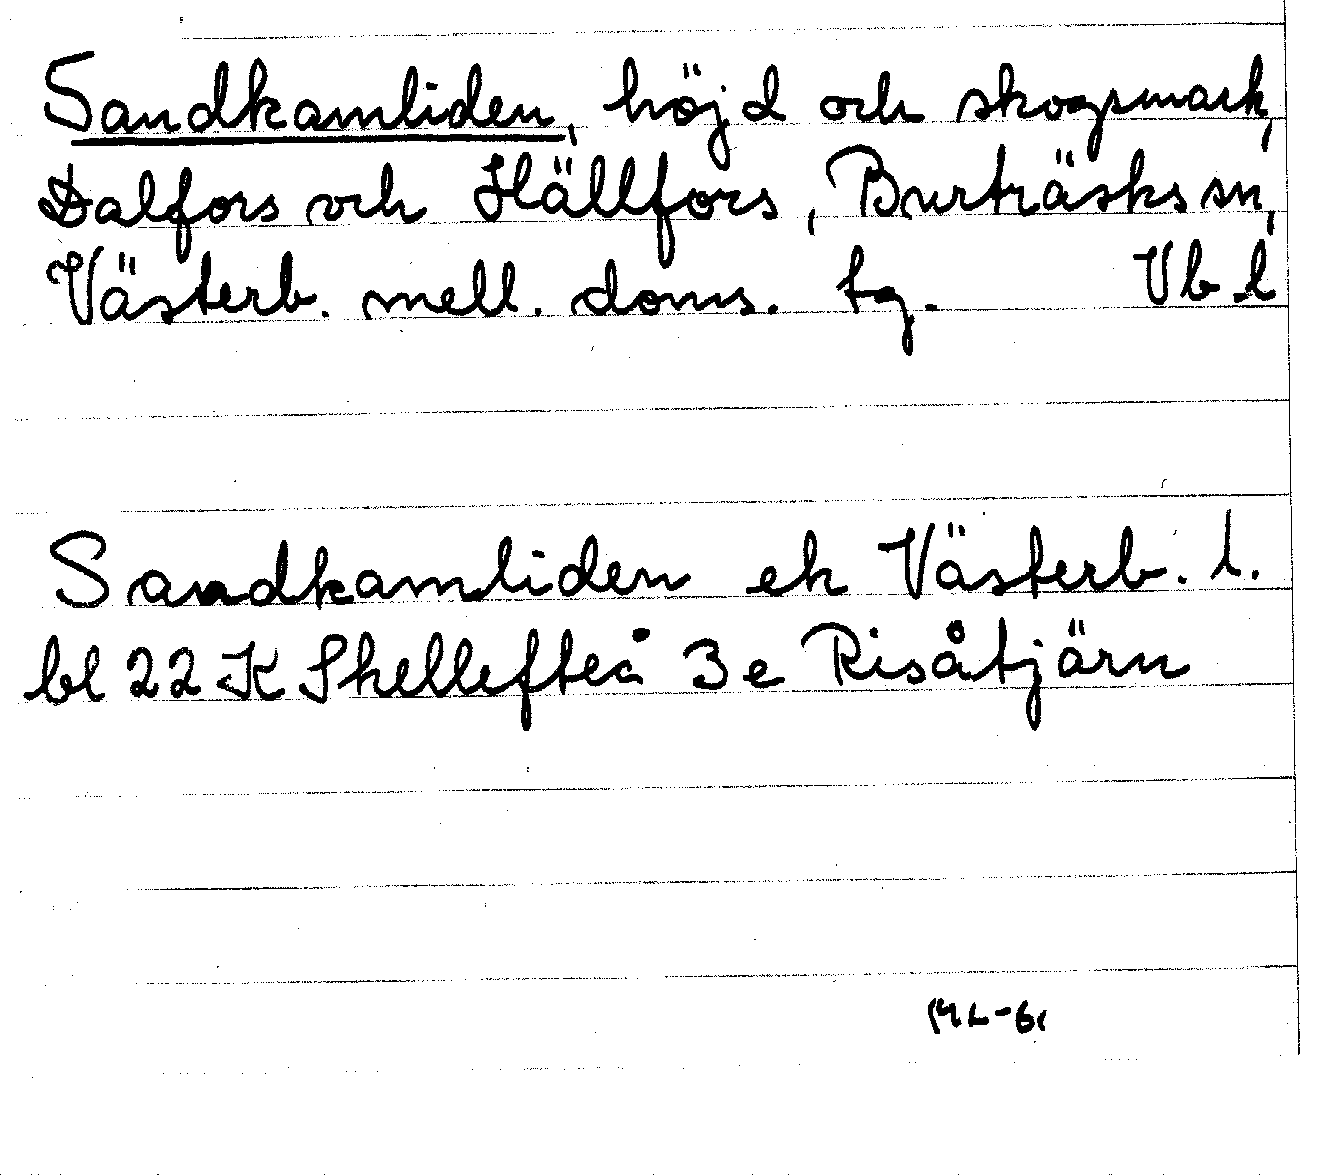 Sandkamliden, höjd och skogsmark,
Dalfors och Hällfors, Burträsks sn,
Västerb. mell. doms. tg. Vb. l
Sandkamliden ek Västerb. l.
bl 22 K Skellefteå 3e Risåtjärn